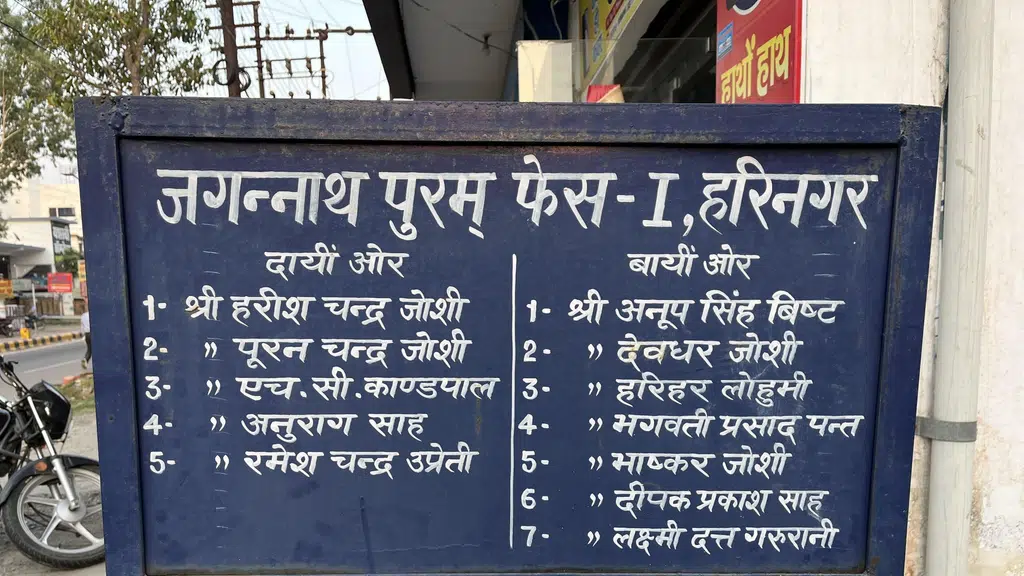 हाथों हाथ
जगन्नाथ पुरम् फेस-I, हरिनगर
दायीं ओर
1- श्री हरीश चन्द्र जोशी
2- " पूरन चन्द्र जोशी
3- " एच.सी.काण्डपाल
4- " अनुराग साह
5- " रमेश चन्द्र उप्रेती
बायीं ओर
1- श्री अनूप सिंह बिष्ट
2- " देवधर जोशी
3- " हरिहर लोहुमी
4- " भगवती प्रसाद पन्त
5- " भाष्कर जोशी
6- " दीपक प्रकाश साह
7- " लक्ष्मी दत्त गरुरानी